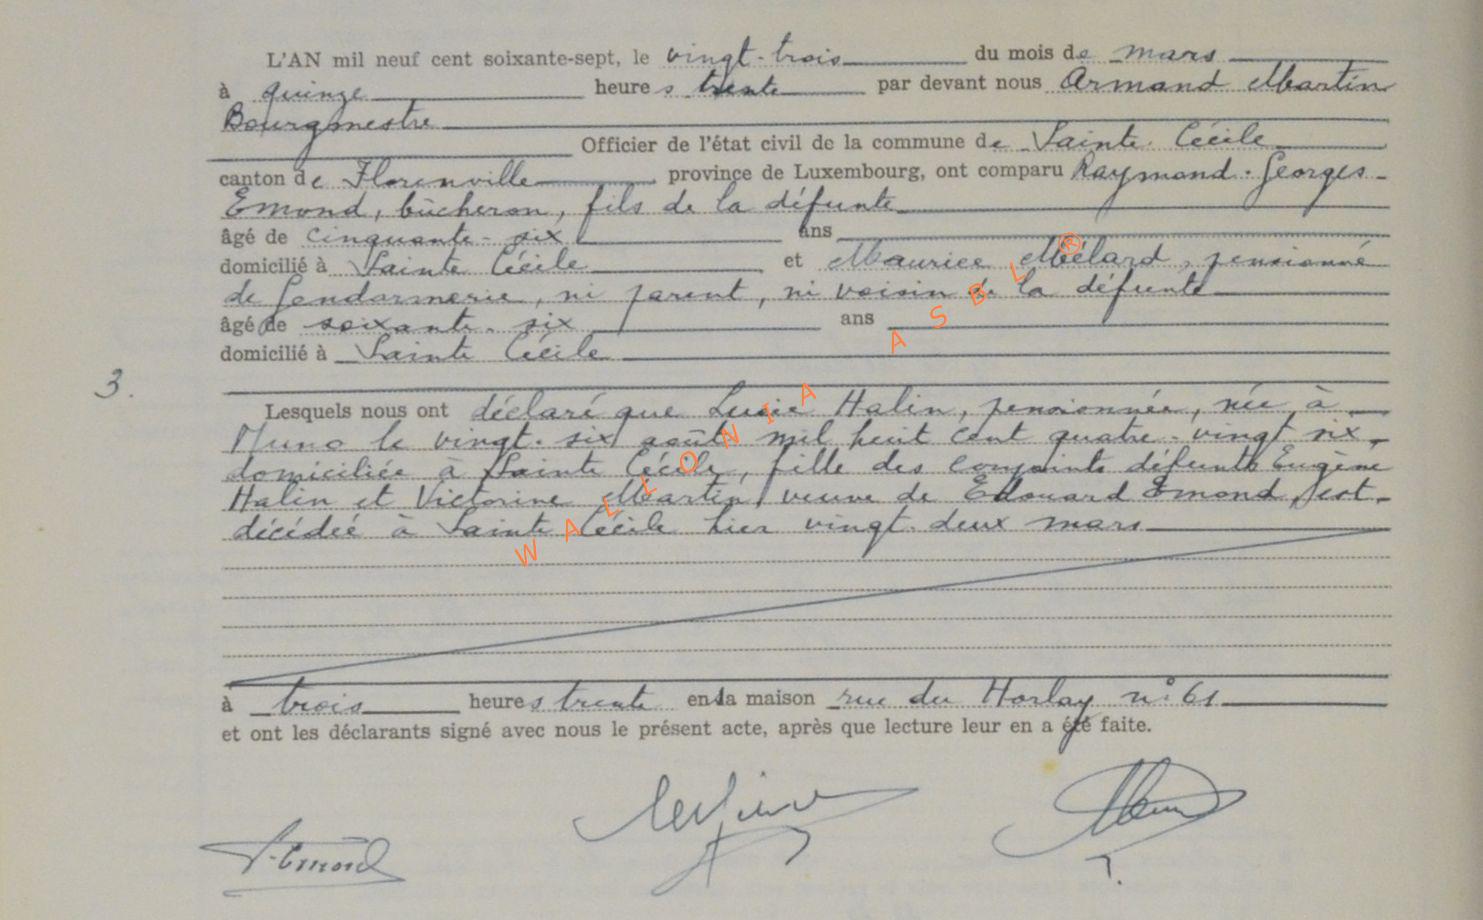 L'AN mil neuf cent soixante-sept, le vingt-trois du mois de mars
à quinze heures trente par devant nous Armand Martin
Bourgmestre
Officier de l'état civil de la commune de Sainte-Cécile
canton de Florenville province de Luxembourg, ont comparu Raymond-Georges-
Emond, bûcheron, fils de la défunte
âgé de cinquante-six ans
domicilié à Sainte Cécile et Maurice Mélard, pensionné
de Gendarmerie, ni parent, ni voisin de la défunte
âgé de soixante-six ans
domicilié à Sainte Cécile
3.
Lesquels nous ont déclaré que Lucie Halin, pensionnée, née à
Muno le vingt-six août mil huit cent quatre-vingt six,
domiciliée à Sainte Cécile, fille des conjoints défunts Eugène
Halin et Victorine Martin, veuve de Edouard Emond, est
décédée à Sainte Cécile hier vingt-deux mars
à trois heures trente en la maison rue du Horlay n° 61
et ont les déclarants signé avec nous le présent acte, après que lecture leur en a été faite.
Emond
WALLONIA ASBL ®